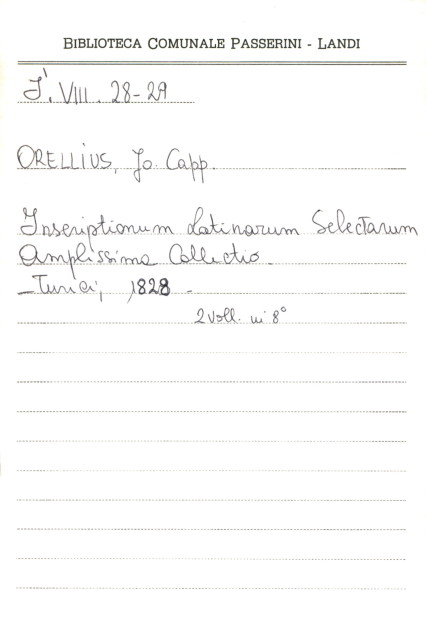 BIBLIOTECA COMUNALE PASSERINI - LANDI
I'. VIII. 28-29
ORELLIUS, Jo. Capp.
Inscriptionum Latinarum Selectarum
Amplissima Collectio.
- Turici, 1828 -
2 voll. in 8°